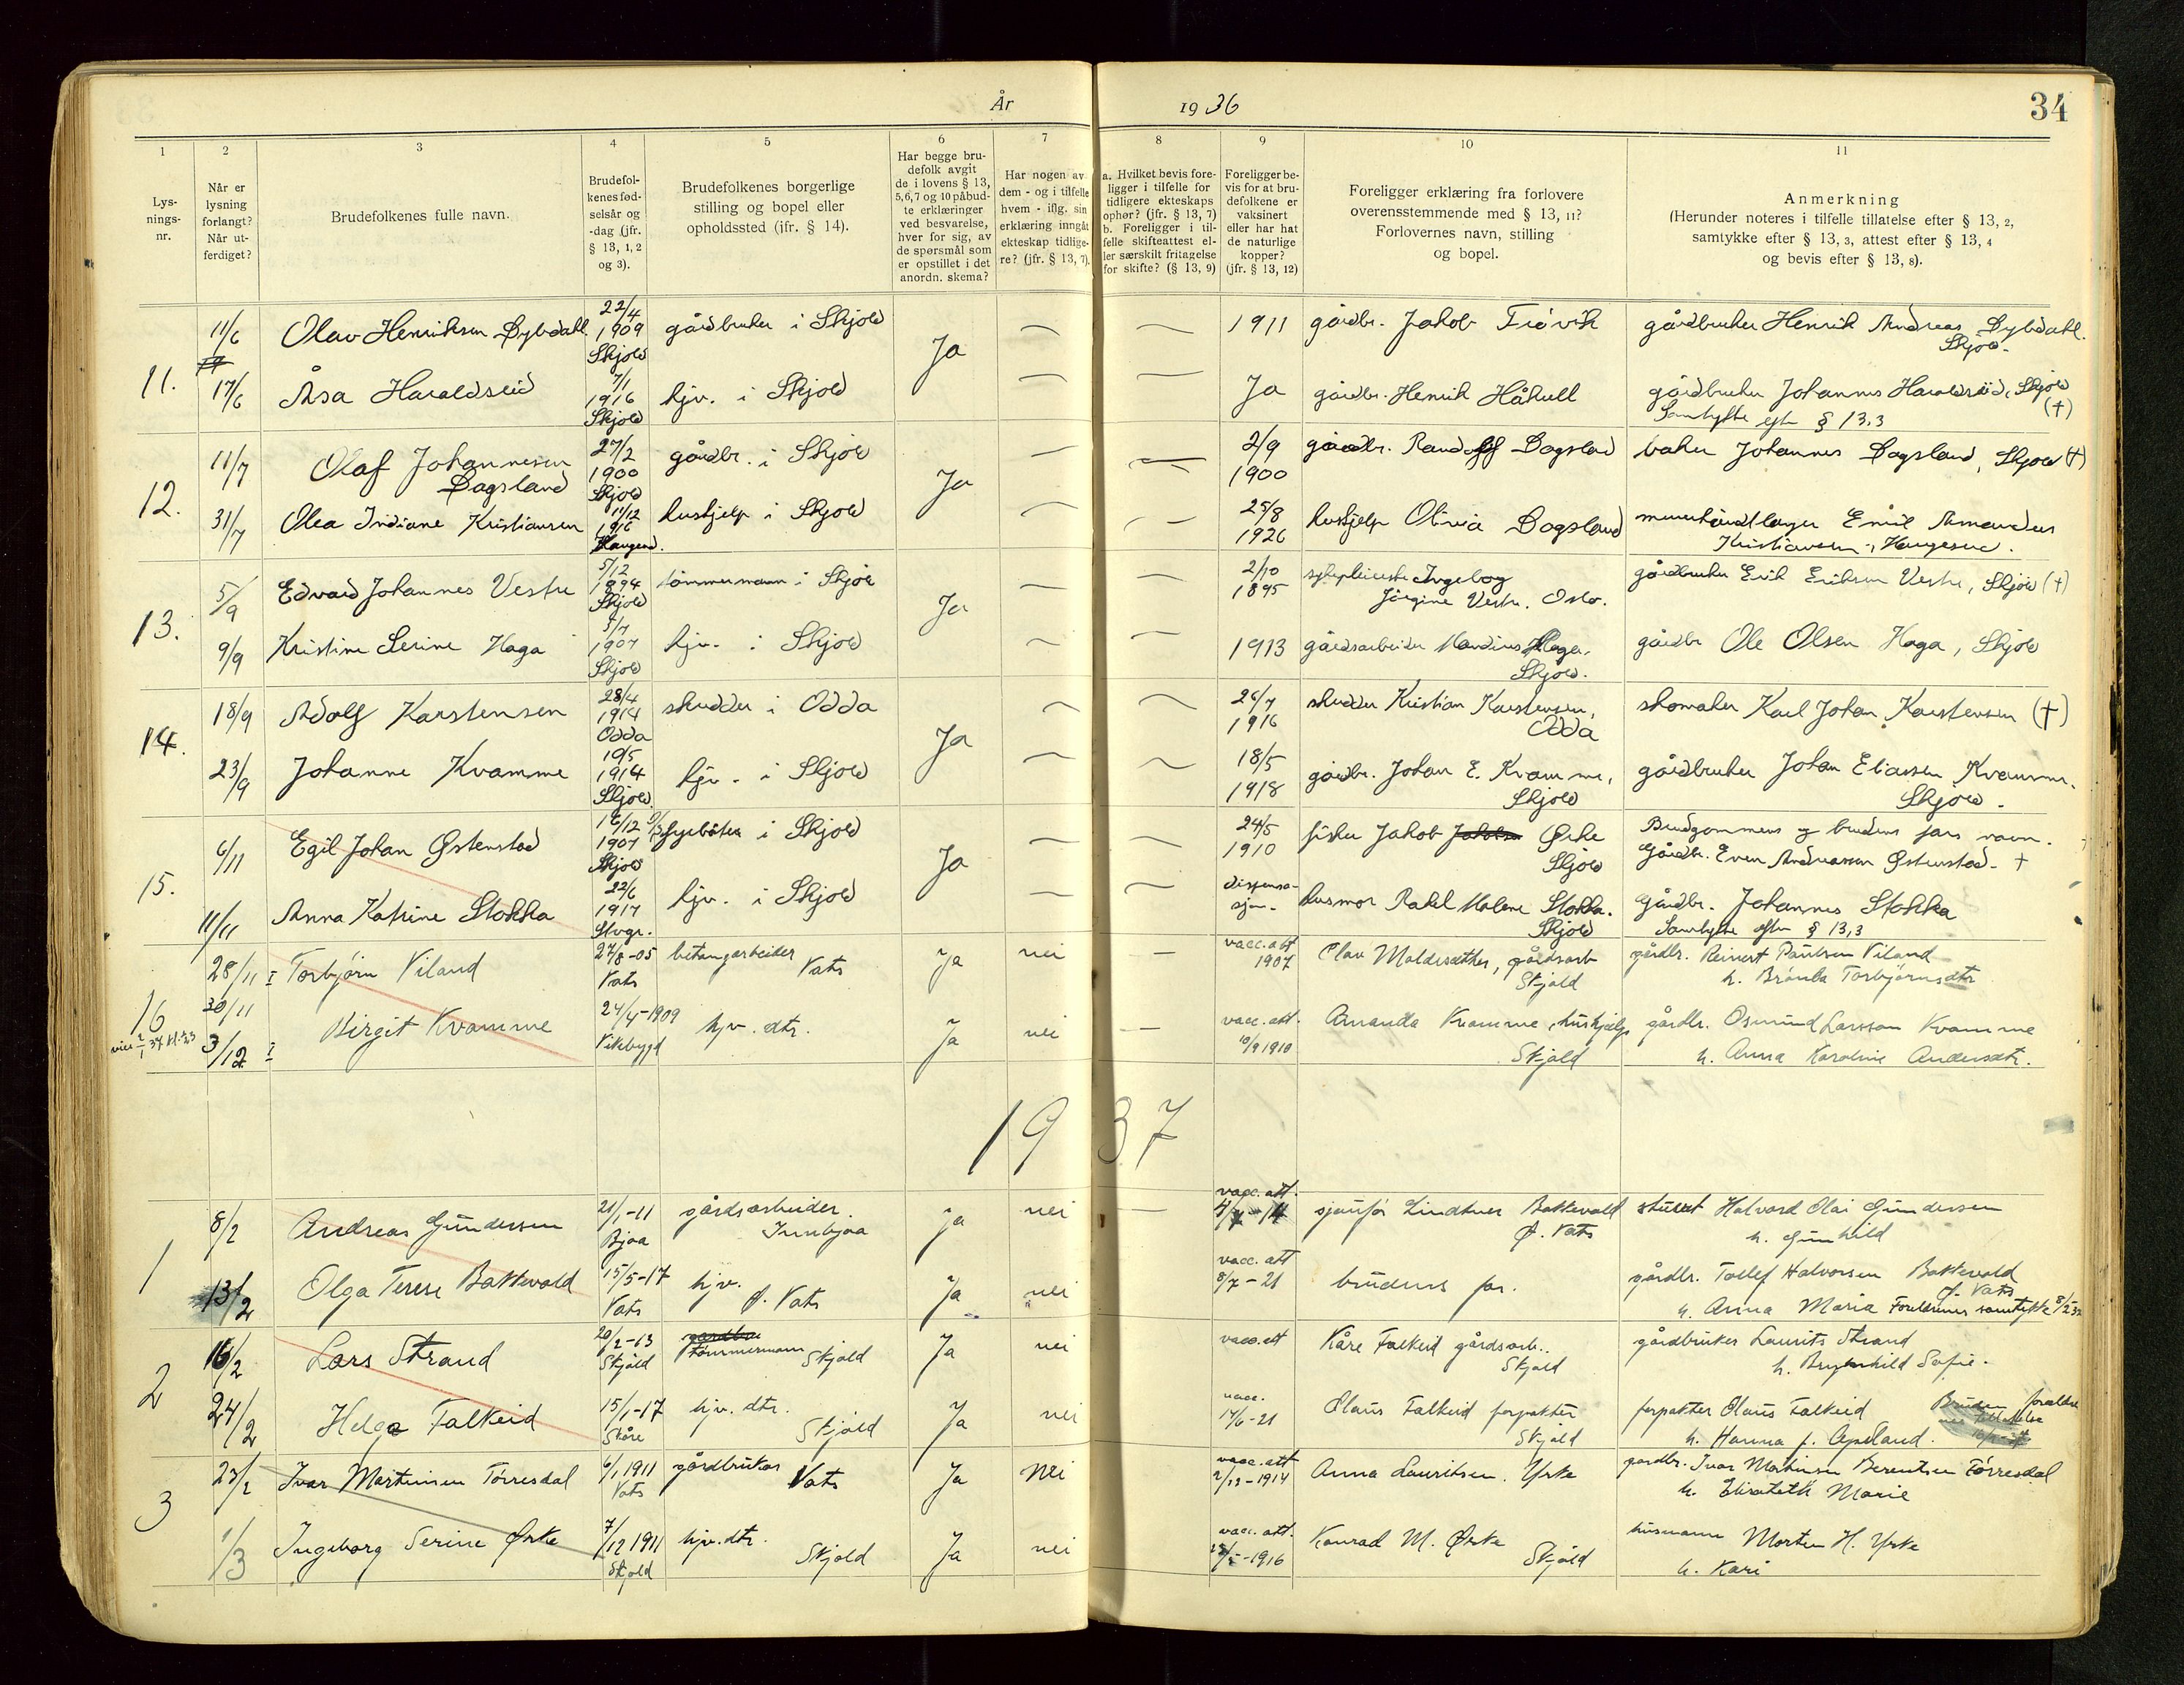 År
1936
34
1
2
3
4
5
6
7
8
9
10
11
Lys-
nings-
nr.
Når er
lysning
forlangt?
Når ut-
ferdiget?
Brudefolkenes fulle navn.
Brudefol-
kenes fød-
selsår og
-dag (jfr.
§ 13, 1, 2
og 3).
Brudefolkenes borgerlige
stilling og bopel eller
opholdssted (jfr. § 14).
Har begge bru-
defolk avgit
de i lovens § 13,
5, 6, 7 og 10 påbud-
te erklæringer
ved besvarelse,
hver for sig, av
de spørsmål som
er opstillet i det
anordn. skema?
Har nogen av
dem - og i tilfelle
hvem - iflg. sin
erklæring inngåt
ekteskap tidlige-
re? (jfr. § 13, 7).
a. Hvilket bevis fore-
ligger i tilfelle for
tidligere ekteskaps
ophør? (jfr. § 13, 7)
b. Foreligger i til-
felle skifteattest el-
ler særskilt fritagelse
for skifte? (§ 13, 9)
Foreligger be-
vis for at bru-
defolkene er
vaksinert
eller har hat
de naturlige
kopper?
(jfr. § 13, 12)
Foreligger erklæring fra forlovere
overensstemmende med § 13, 11?
Forlovernes navn, stilling
og bopel.
Anmerkning
(Herunder noteres i tilfelle tillatelse efter § 13, 2,
samtykke efter § 13, 3, attest efter § 13, 4
og bevis efter § 13, 8).
11. 11/6 Olav Henriksen Dybdahl 22/4 1909 Skjold gårdbruker i Skjold Ja — — 1911 gårdbr. Jakob Frøvik gårdbruker Henrik Andreas Dybdahl.
Skjold.
17/6 Åsa Haraldseid 7/1 1916 Skjold hjv. i Skjold — — Ja gårdbr. Henrik Håkull gårdbruker Johannes Haraldseid, Skjold (†)
Samtykke efter § 13.3
12. 11/7 Olaf Johannesen
Dagsland 27/2 1900 Skjold gårdbr. i Skjold Ja — — 2/9 1900 gårdbr. Dagsland baker Johannes Dagsland, Skjold (†)
31/7 Olea Indiane Kristiansen 11/12 Haugesd. hushjelp i Skjold — — 25/8 1926 hushjelp Olivia Dagsland murerhåndlanger Emil Amandus
Kristiansen, Haugesund.
13. 5/9 Edvard Johannes Vestre 5/12 1894 Skjold tømmermann i Skjold Ja — — 2/10 1895 sykepleierske Ingeborg
Jørgine Vestre. Oslo. gårdbruker Erik Eriksen Vestre, Skjold (†)
9/9 Kristine Serine Haga 5/7 1907 Skjold hjv. i Skjold — — 1913 gårdsarbeider Haga,
Skjold. gårdbr Ole Olsen Haga, Skjold
14. 18/9 Adolf Karstensen 28/4 1914 Odda skredder i Odda Ja — — 26/7 1916 skredder Kristian Karstensen,
Odda skomaker Karl Johan Karstensen (†)
23/9 Johanne Kvamme 10/5 1914 Skjold hjv. i Skjold — — 18/5 1918 gårdbr. Johan E. Kvamme,
Skjold gårdbruker Johan Eliassen Kvamme.
Skjold.
15. 6/11 Egil Johan Østenstad 16/12 1907 Skjold fyrbøter i Skjold Ja — — 24/5 1910 fisker Jakob Ørke
Skjold Brudgommens og brudens fars navn.
Gårdbr. Even Andreassen Østenstad. †
11/11 Anna Katrine Stokka 22/6 1917 Stvgr. hjv. i Skjold — — dispensa-
sjon. husmor Rakel Malene Stokka.
Skjold gårdbr. Johannes Stokka
Samtykke efter § 13,3
16 28/11 Torbjørn Viland 27/8-05 Vats betongarbeider Vats Ja nei — vacc. att 1907 Olav Maldesæther, gårdsarb
Skjold gårdbr. Reinert Paulsen Viland
h. Brønla Torbjørnsdtr
30/11
3/12 Birgit Kvamme 24/4-1909 Vikebygd hjv. dtr. Ja nei — vacc. att. 10/9 1910 Amanda Kvamme, hushjelp
Skjold gårdbr. Osmund Larsson Kvamme
h. Anna Karoline Andersdtr.
1937
1 8/2 Andreas Gundersen 21/1-11 Bjoa gårdsarbeider.
Innbjoa ja nei — vacc. att. sjåufør Lindtner Bakkevold
Ø. Vats Halvard Olai Gundersen
h. Gunhild
13/2 Olga Terese Bakkevold 15/5-17 Vats hjv.
Ø. Vats Ja nei vacc. att 8/7-21 brudens far. gårdbr. Tollef Halvorsen Bakkevold
Ø. Vats
h. Anna Maria Foreldrenes samtykke
2 16/2 Lars Strand 20/2-13 Skjold tømmermann Skjold Ja nei vacc. att Kåre Falkeid gårdsarb..
Skjold gårdbruker Laurits Strand
h. Brynhild Sofie.
24/2 Helga Falkeid 15/1-17 Skåre hjv. dtr.
Skjold Ja nei vacc. 14/6-21 Olaus Falkeid forpakter
Skjold forpakter Olaus Falkeid
h. Hanna f. Apeland.
3 23/2 Ivar Martinsen Tørresdal 6/1 1911 Vats gårdbruker
Vats Ja Nei vacc. att 2/12-1914 Anna Lauritsen. Yrke gårdbr. Ivar Martinsen Berentsen Tørresdal
h. Elisabeth Marie
1/3 Ingeborg Serine Ørke 7/12 1911 Skjold hjv. dtr.
Skjold Ja nei vacc. att. 1916 Konrad M. Ørke
Skjold husmann Morten H. Yrke
h. Kari